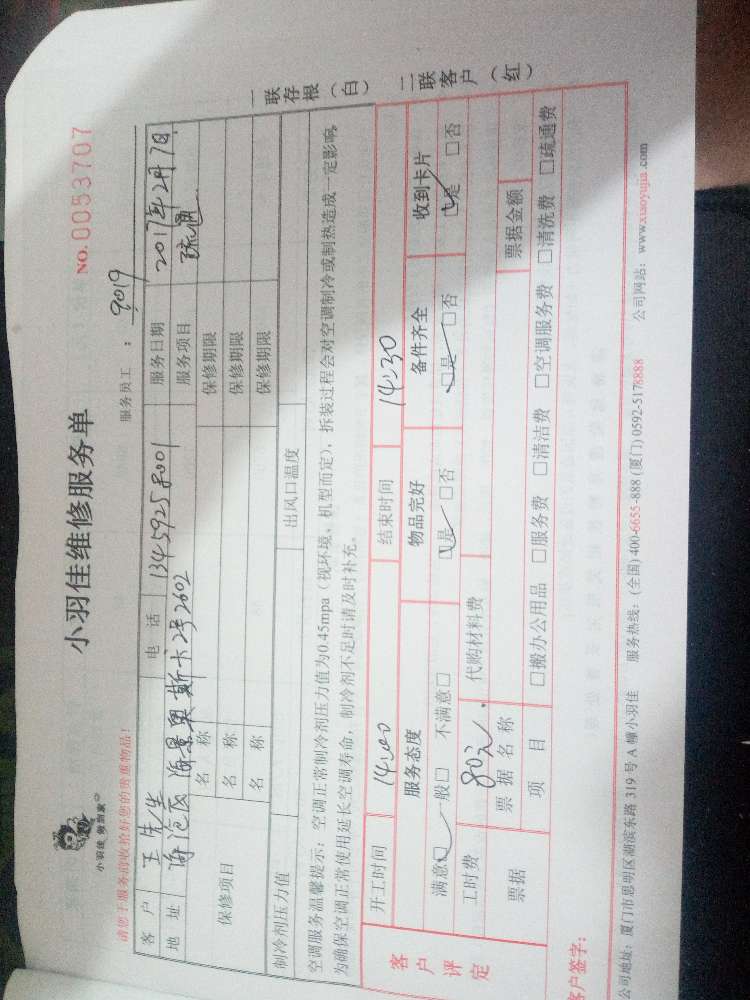 小羽佳 像到家
小羽佳维修服务单
NO.0053707
请您于服务前收拾好您的贵重物品!
服务员工 : 9019
客 户 王先生 电 话 13459258001 服务日期 2017年2月7日
地 址 海沧区 海景奥斯卡2号2602 服务项目 疏通
保修项目
名 称 保修期限
名 称 保修期限
名 称 保修期限
制冷剂压力值 出风口温度
空调服务温馨提示:空调正常制冷剂压力值为0.45mpa(视环境、机型而定),拆装过程会对空调制冷或制热造成一定影响,
为确保空调正常使用延长空调寿命,制冷剂不足时请及时补充。
一联存根(白) 二联客户(红)
客户评定
开工时间 14:00 结束时间 14:30
服务态度 物品完好 备件齐全 收到卡片
满意☑ 一般□ 不满意□ ☑是 □否 ☑是 □否 ☑是 □否
工时费 80元. 代购材料费
票据 票据名称 票据金额
项 目 □搬办公用品 □服务费 □清洁费 □空调服务费 □清洗费 □疏通费
客户签字:
公司地址:厦门市思明区湖滨东路 319 号 A 幢小羽佳 服务热线:(全国) 400-6655-888 (厦门) 0592-5178888 公司网站:www.xiaoyujia.com